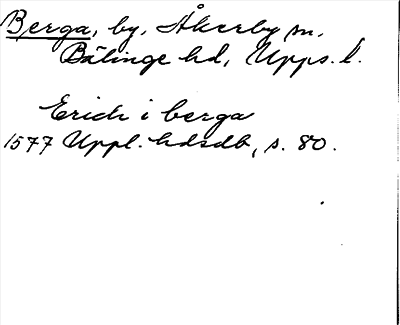 Berga, by, Åkerby sn.
Bälinge hd, Upps. l.
Erich i berga
1577 Uppl. hdsdb, s. 80.